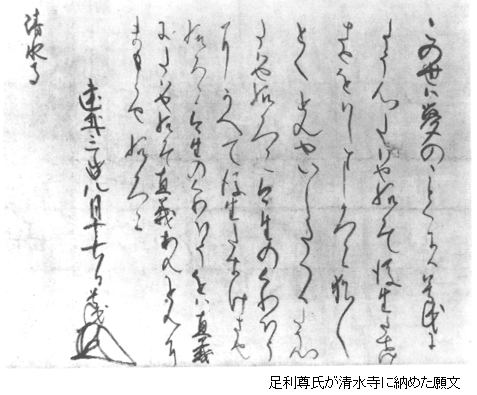 この世は夢のことくに候尊氏に
たう心たはせ給候て後生たすけ
させをハしまし候へく候猶々
とくとんせいしたく候たう心
たはせ給候へく候今生のくわほう
にかへて後生たすけさせ
給候へく候今生のくわほうをハ直義
にたはせ給候て直義あんをんに
まもらせ給候へく候
建武三年八月十七日尊氏
清水寺
足利尊氏が清水寺に納めた願文